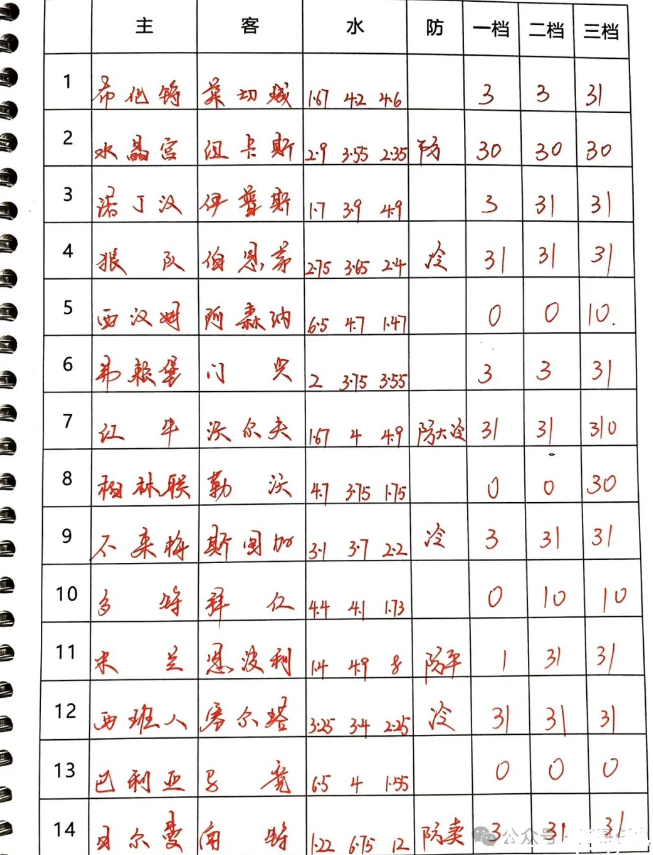 主 客 水 防 一档 二档 三档
1 布伦特 莱切城 1.67 4.2 4.6 3 3 31
2 水晶宫 纽卡斯 2.9 3.55 2.35 防 30 30 30
3 诺丁汉 伊普斯 1.7 3.9 4.9 3 31 31
4 狼队 伯恩茅 2.75 3.65 2.4 冷 31 31 31
5 西汉姆 阿森纳 6.5 4.7 1.47 0 0 10.
6 弗赖堡 门兴 2 3.75 3.55 3 3 31
7 红牛 沃尔夫 1.67 4 4.9 防大冷 31 31 310
8 柏林联 勒沃 4.7 3.75 1.75 0 0 30
9 不来梅 斯图加 3.1 3.7 2.2 冷 3 31 31
10 多特 拜仁 4.4 4.1 1.73 0 10 10
11 米兰 恩波利 1.4 4.9 8 防平 1 31 31
12 西班人 塞尔塔 3.25 3.4 2.25 冷 31 31 31
13 巴利亚 马竞 6.5 4 1.55 0 0 0
14 贝尔曼 南特 1.22 6.75 12 防卖 3 31 31
公众号